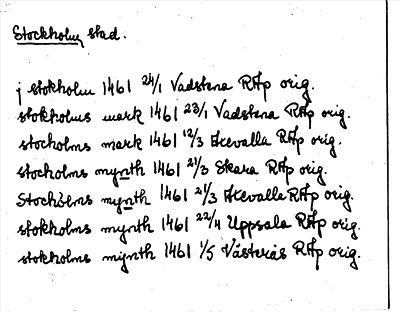 Stockholm, stad.
j stokholm 1461 24/1 Vadstena RAp orig.
stokholms mark 1461 23/1 Vadstena RAp orig.
stocholms mark 1461 12/3 Axevalla RAp orig.
stocholms mynth 1461 21/3 Skara RAp orig.
Stocholms mynth 1461 21/3 Axevalla RAp orig.
stokholms mynth 1461 22/4 Uppsala RAp orig.
stokholms mynth 1461 1/5 Västerås RAp orig.